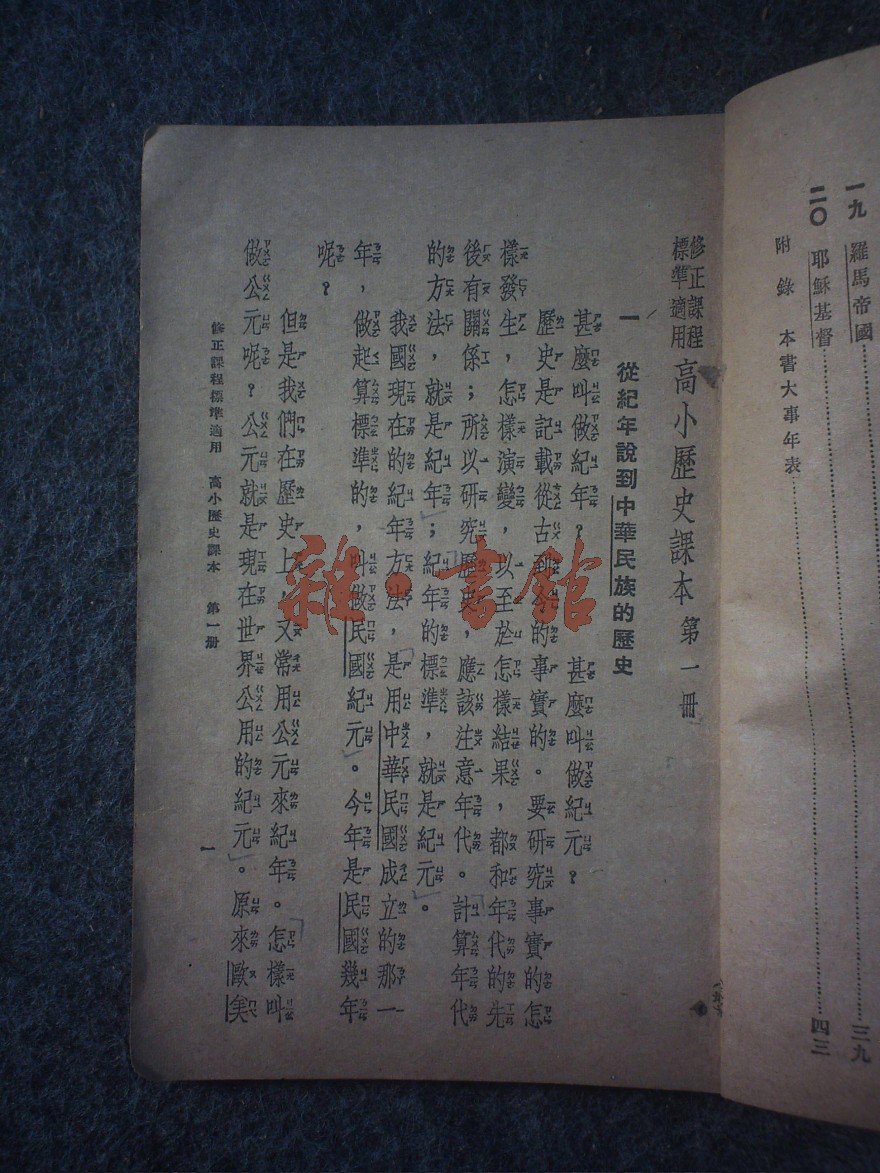 一九　羅馬帝國……三九
二〇　耶穌基督……四三
附錄　本書大事年表……
修正課程標準適用　高小歷史課本　第一冊
一　從紀年說到中華民族的歷史
甚麼叫做紀年？　甚麼叫做紀元？
歷史是記載從古到今的事實的。要研究事實的怎
樣發生，怎樣演變，以至於怎樣結果，都和年代的先
後有關係；所以研究歷史，應該注意年代。計算年代
的方法，就是紀年；紀年的標準，就是紀元。
我國現在的紀年方法，是用中華民國成立的那一
年，做起算標準的，叫做民國紀元。今年是民國幾年
呢？
但是我們在歷史上，又常用公元來紀年。怎樣叫
做公元呢？公元就是現在世界公用的紀元。原來歐美
修正課程標準適用　高小歷史課本　第一册
一
雜·書館